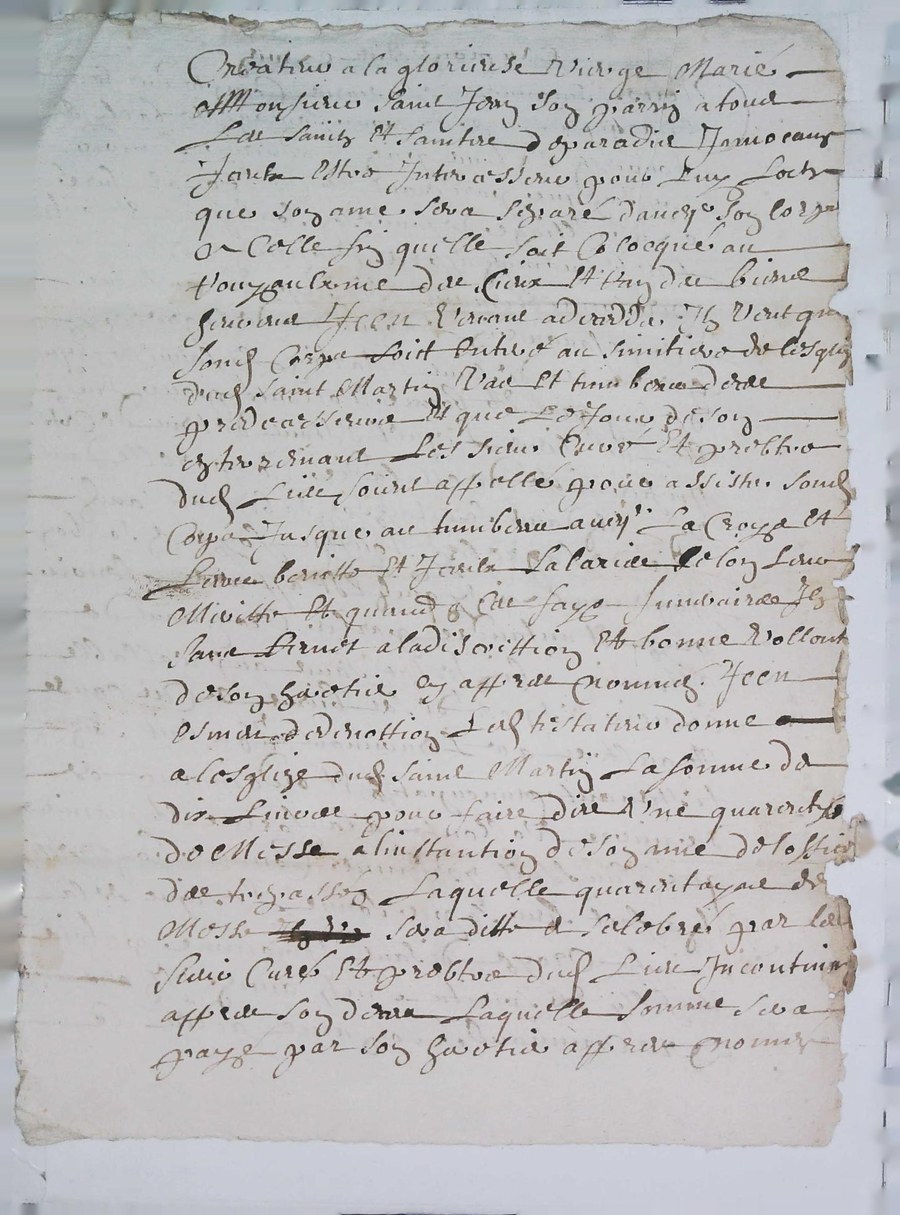 Createur a la glorieuse Vierge Marie
Monsieur Saint Jean son parrin a toue
Les Saintz et Saintes de paradis Invocant
Iceulx estre Intercesseurs pour Luy Lors
que son ame sera separé d'aveq son corps
a Celle fin quelle soit Coloquée au
Royaulxme des Cieux et ran des biens
heureux Item Il veut que
sond Corps soit entere au simitiere de lesglize
dud saint Martin Vas et tumbeau de ses
predecesseurs et que Le Jour de son
enterrement Les sieurs Cure et prebtres
dud Lieu soient appellé pour assister sond
Corps Jusque au tumbeau aveq La Croys et
Leau benitte et Iceulx Salaries selon Leur
Meritte et quand es
sans a la discrettion et bonne Vollont
de son heretier en appres nommé. Item
de devottion Led testateur donne
a lesglize dud Saint Martin La somme de
dix Livres pour faire dire Une quarent
de Messe a de son ame de
des trepassés Laquelle quarentayne de
Messe sera ditte e selebré par les
sieurs Cures et prebtres dud Lieu Incontinen
appres son deces Laquelle somme sera
payé par son heretier appres nommé